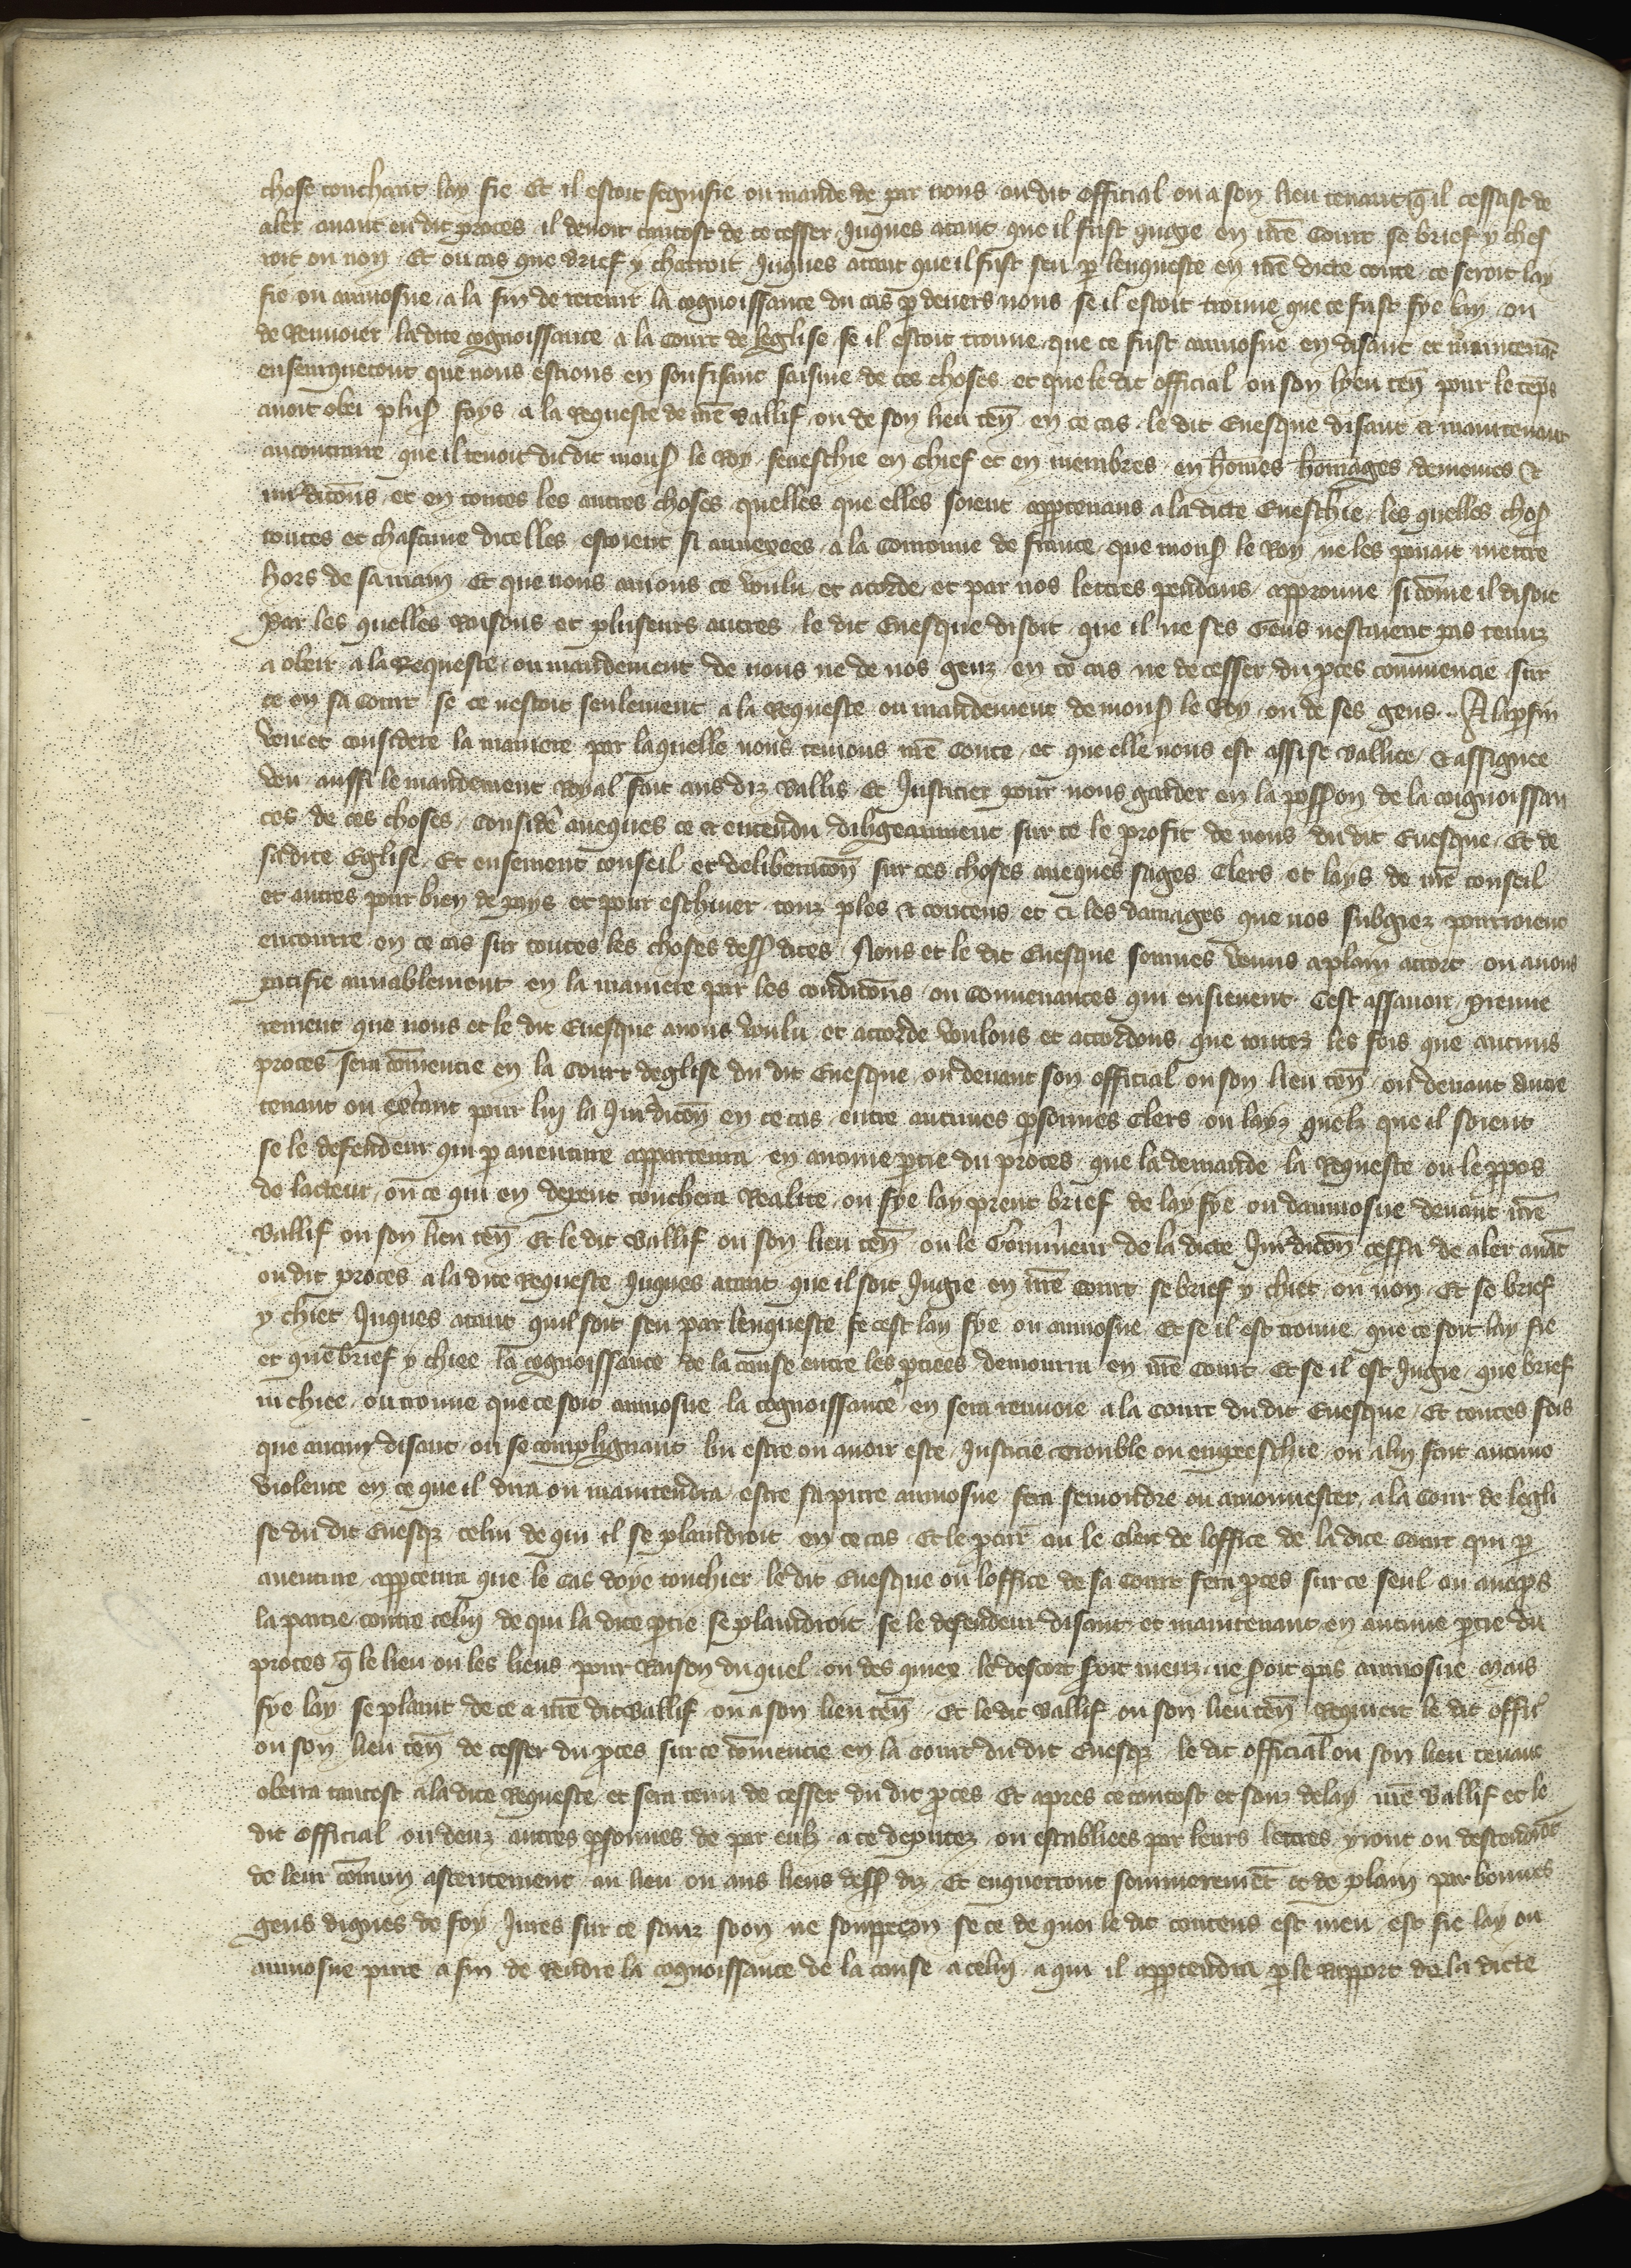 chose touchant lay fie Et il estoit segnifie ou mande de par nous ou dit official ou a son lieu tenant q̃ il cessast de
aler auant ou dit proces il deuoit tantost de ce cesser Juques atant que il fust jugie en nr̃e Court se brief y ches
roit ou non Et ou cas que brief y charroit Juques atant que il fust seu p lenqueste en nr̃e dicte court se seroit lay
fie ou aumosne a la fin de retenir la cognoissance du cas p deuers nous se il estoit trouue que ce fust fye lay ou
de Renuoier ladite cognoissance a la Court de leglise se il estoit trouue que ce fust aumosne en disant et maintenāt
ensemquetout que nous estions en souffisant saisine de ces choses et que le dit official ou son lyeu teñ pour le tēps
auoit obei plus̃ foys a la Requeste de nr̃e Baillif ou de son lieu teñ en ce cas le dit Euesque disant et maintenant
aucontraire que il tenoit du dit mons̃ le Roy seueschie en chief et en membres en hōmes homages demeines et
iurdicōns et en toutes les autres choses quelles que elles soient appartenans a ladicte Eueschie les quelles chos̃
toutes et chascune dicelles estoient si annexees a la Couronne de france que mons̃ le Roy ne les pouait mettre
hors de samain Et que nous auions ce voulu et acorde et par nos lettres pendans approuue si cōme il disoit
Par les quelles Raisons et pluseurs autres le dit Euesque disoit que il ne ses Gens nestoient pas tenuz
a obeir a la Requeste ou mandement de nous ne de nos genz en ce cas ne de cesser du pces commencie sur
ce en sa Court se ce nestoit seulement a la Requeste ou mandement de mons̃ le Roy ou de ses gens Alapfin
veu et considere la maniere par laquelle nous tenions nr̃e Conte et que elle nous est assise baillice et assignee
veu aussi le mandement Royal fait aus diz Baillis et Justicier pour nous garder en la poss̃on de la coignoissan
ces de ces choses Considere auecques ce et entendu diligeaument sur ce le profit de nous du dit Euesque Et de
sadite Eglise Et ensement conseil et deliberacōn sur ces choses auecques sages Clers et lays de nr̃e conseil
et autres pour bien de pays et pour eschiuer touz ples et contens et les damages que nos subgiez pourroient
encourre en ce cas sur toutes les choses dess̃ dites Nous et le dit Euesque sommes venus aplain accort ou auons
pacifie amiablement en la maniere par les condicōns ou Conuenances qui ensieuent Cest assauoir Premie
rement que nous et le dit Euesque auons voulu et accorde voulons et accordons que toutez les fois que aucuns
proces sera cōmencie en la Court deglise du dit Euesque ou deuant son official ou son lieu teñ ou deuant autre
tenant ou excant pour luy la Jurdicōn en ce cas entre aucunes psonnes Clers ou layz quelz que il soient
se le defendeur qui p auenture appartenra en aucune ptie du proces que la demande la Requeste ou le ppos
de lacteur ou ce qui en depent touchera Realite ou fye lay prent brief de lay fye ou daumosne deuant nr̃e
Baillif ou son lieu teñ Et le dit Baillif ou son lieu teñ ou le Gouũneur de la dicte Jurdicōn cessa de aler auāt
ou dit proces a la dite Requeste Juques atant que il soit Jugie en nr̃e court se brief y chiet ou non Et se brief
y chiet Juques atant quil soit seu par lenqueste se cest lay fye ou aumosne Et se il est trouue que ce soit lay fie
et que brief y chiee la cognoissance de la cause entre les pties demourra en nr̃e Court Et se il est Jugie que brief
ni chiee ou trouue que ce soit aumosne la cognoissance en sera renuoie a la Court du dit Euesque Et toutes fois
que aucun disant ou se complignant lui estre ou auoir este Justicie trouble ou empeeschie ou a luy fait aucune
violence en ce que il dira ou maintendra estre sa pure aumosne sera semondre ou amonnester a la Court de legli
se du dit Euesq̃ celui de qui il se plaindroit en ce cas Et le ou le Clerc de loffice de la dite Court qui p
auenture apptenra que le cas doye touchier le dit Euesque ou loffice de sa Court fera pces sur ce seul ou auecqs
la partie contre celuy de qui la dite ptie seplaindroit se le defendeur disant et maintenant en aucune ptie du
proces q̃ le lieu ou les lieus pour Raison du quel ou des quiex le descort soit meuz ne soit pas aumosne Mais
fye lay seplaint de ce a nr̃e dit Baillif ou a son lieu teñ Et le dit Baillif ou son lieu teñ Requiert le dit offil
ou son lieu teñ de cesser du pces sur ce cōmencie en la Court du dit Euesq̃ le dit official ou son lieu tenant
obeira tantost a la dite Requeste et sera tenu de cesser du dit pces Et apres ce tantost et sanz delay nr̃e Baillif et le
dit official ou deuz autres psonnes de par eulz a ce deputez ou establiees par leurs lettres yront ou descendrōt
de leur cōmun assentement au lieu ou aus lieus dess̃ diz Et enquerront sommeremēt et de plain par bonnes
gens dignes de foy Jures sur ce sanz soon ne souppecon se ce de quoi le dit contens est meu est fie lay ou
aumosne pure a fin de Rendre la cognoissance de la cause a celuy a qui il apptendra p le Rapport de la dicte